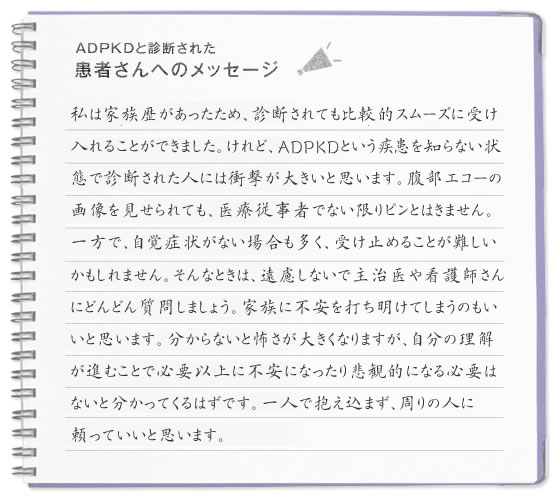 ADPKDと診断された
患者さんへのメッセージ
私は家族歴があったため、診断されても比較的スムーズに受け
入れることができました。けれど、ADPKDという疾患を知らない状
態で診断された人には衝撃が大きいと思います。腹部エコーの
画像を見せられても、医療従事者でない限りピンとはきません。
一方で、自覚症状がない場合も多く、受け止めることが難しい
かもしれません。そんなときは、遠慮しないで主治医や看護師さん
にどんどん質問しましょう。家族に不安を打ち明けてしまうのもい
いと思います。分からないと怖さが大きくなりますが、自分の理解
が進むことで必要以上に不安になったり悲観的になる必要は
ないと分かってくるはずです。一人で抱え込まず、周りの人に
頼っていいと思います。